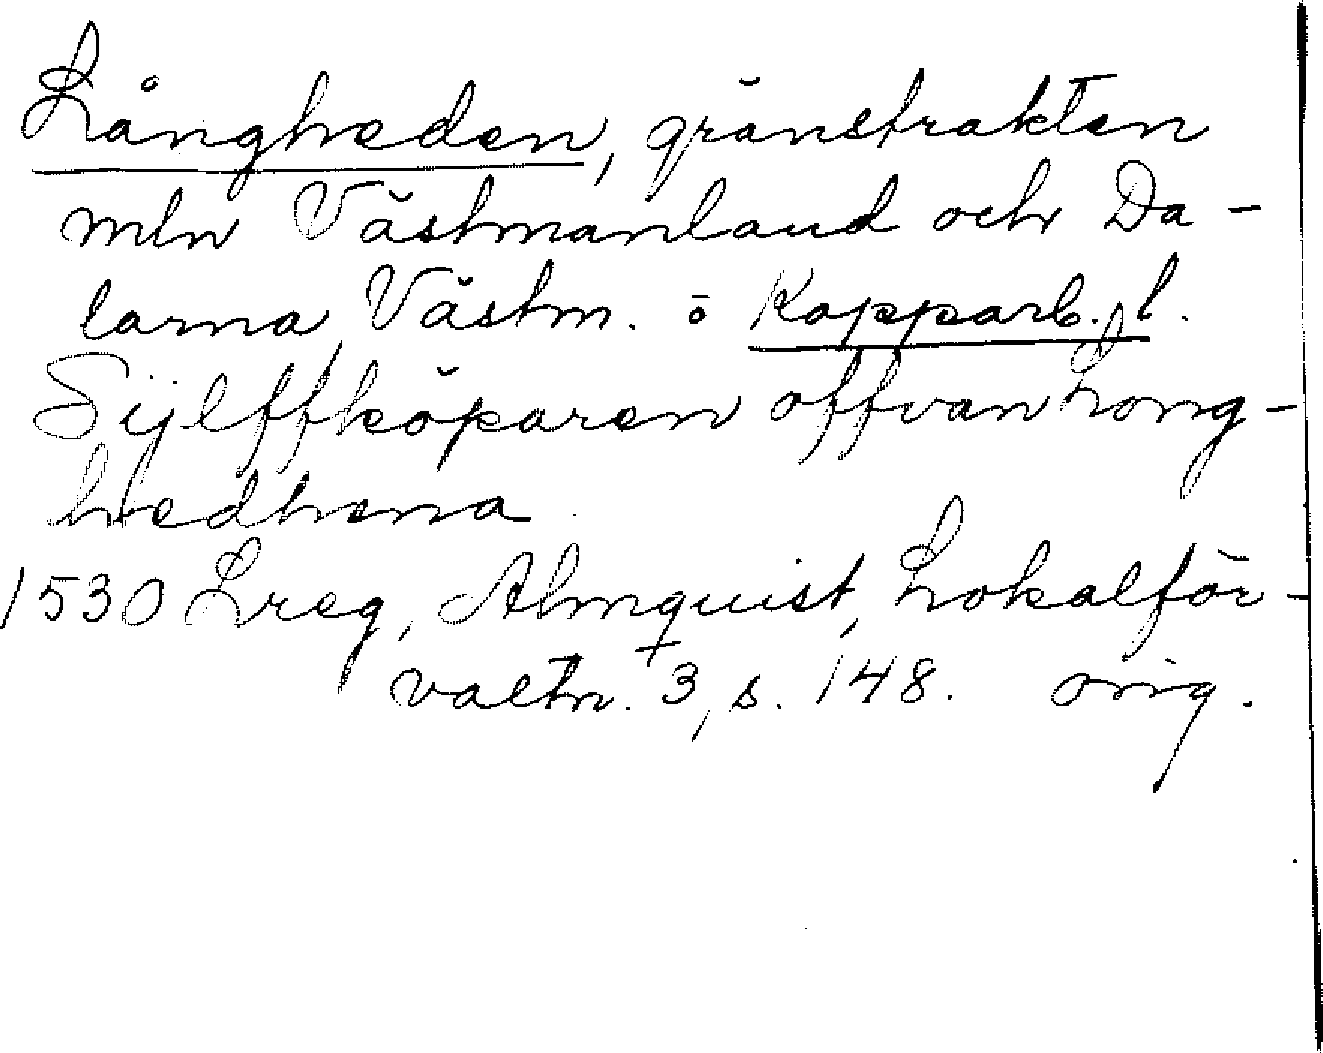 Långheden, gränstrakten
mln Västmanland och Da-
larna, Västm. o Kopparb. l.
Sijlffköparen offvan Long-
hedhena
1530 Lreg, Almquist, Lokalför-
valtn. 3, s. 148. orig.